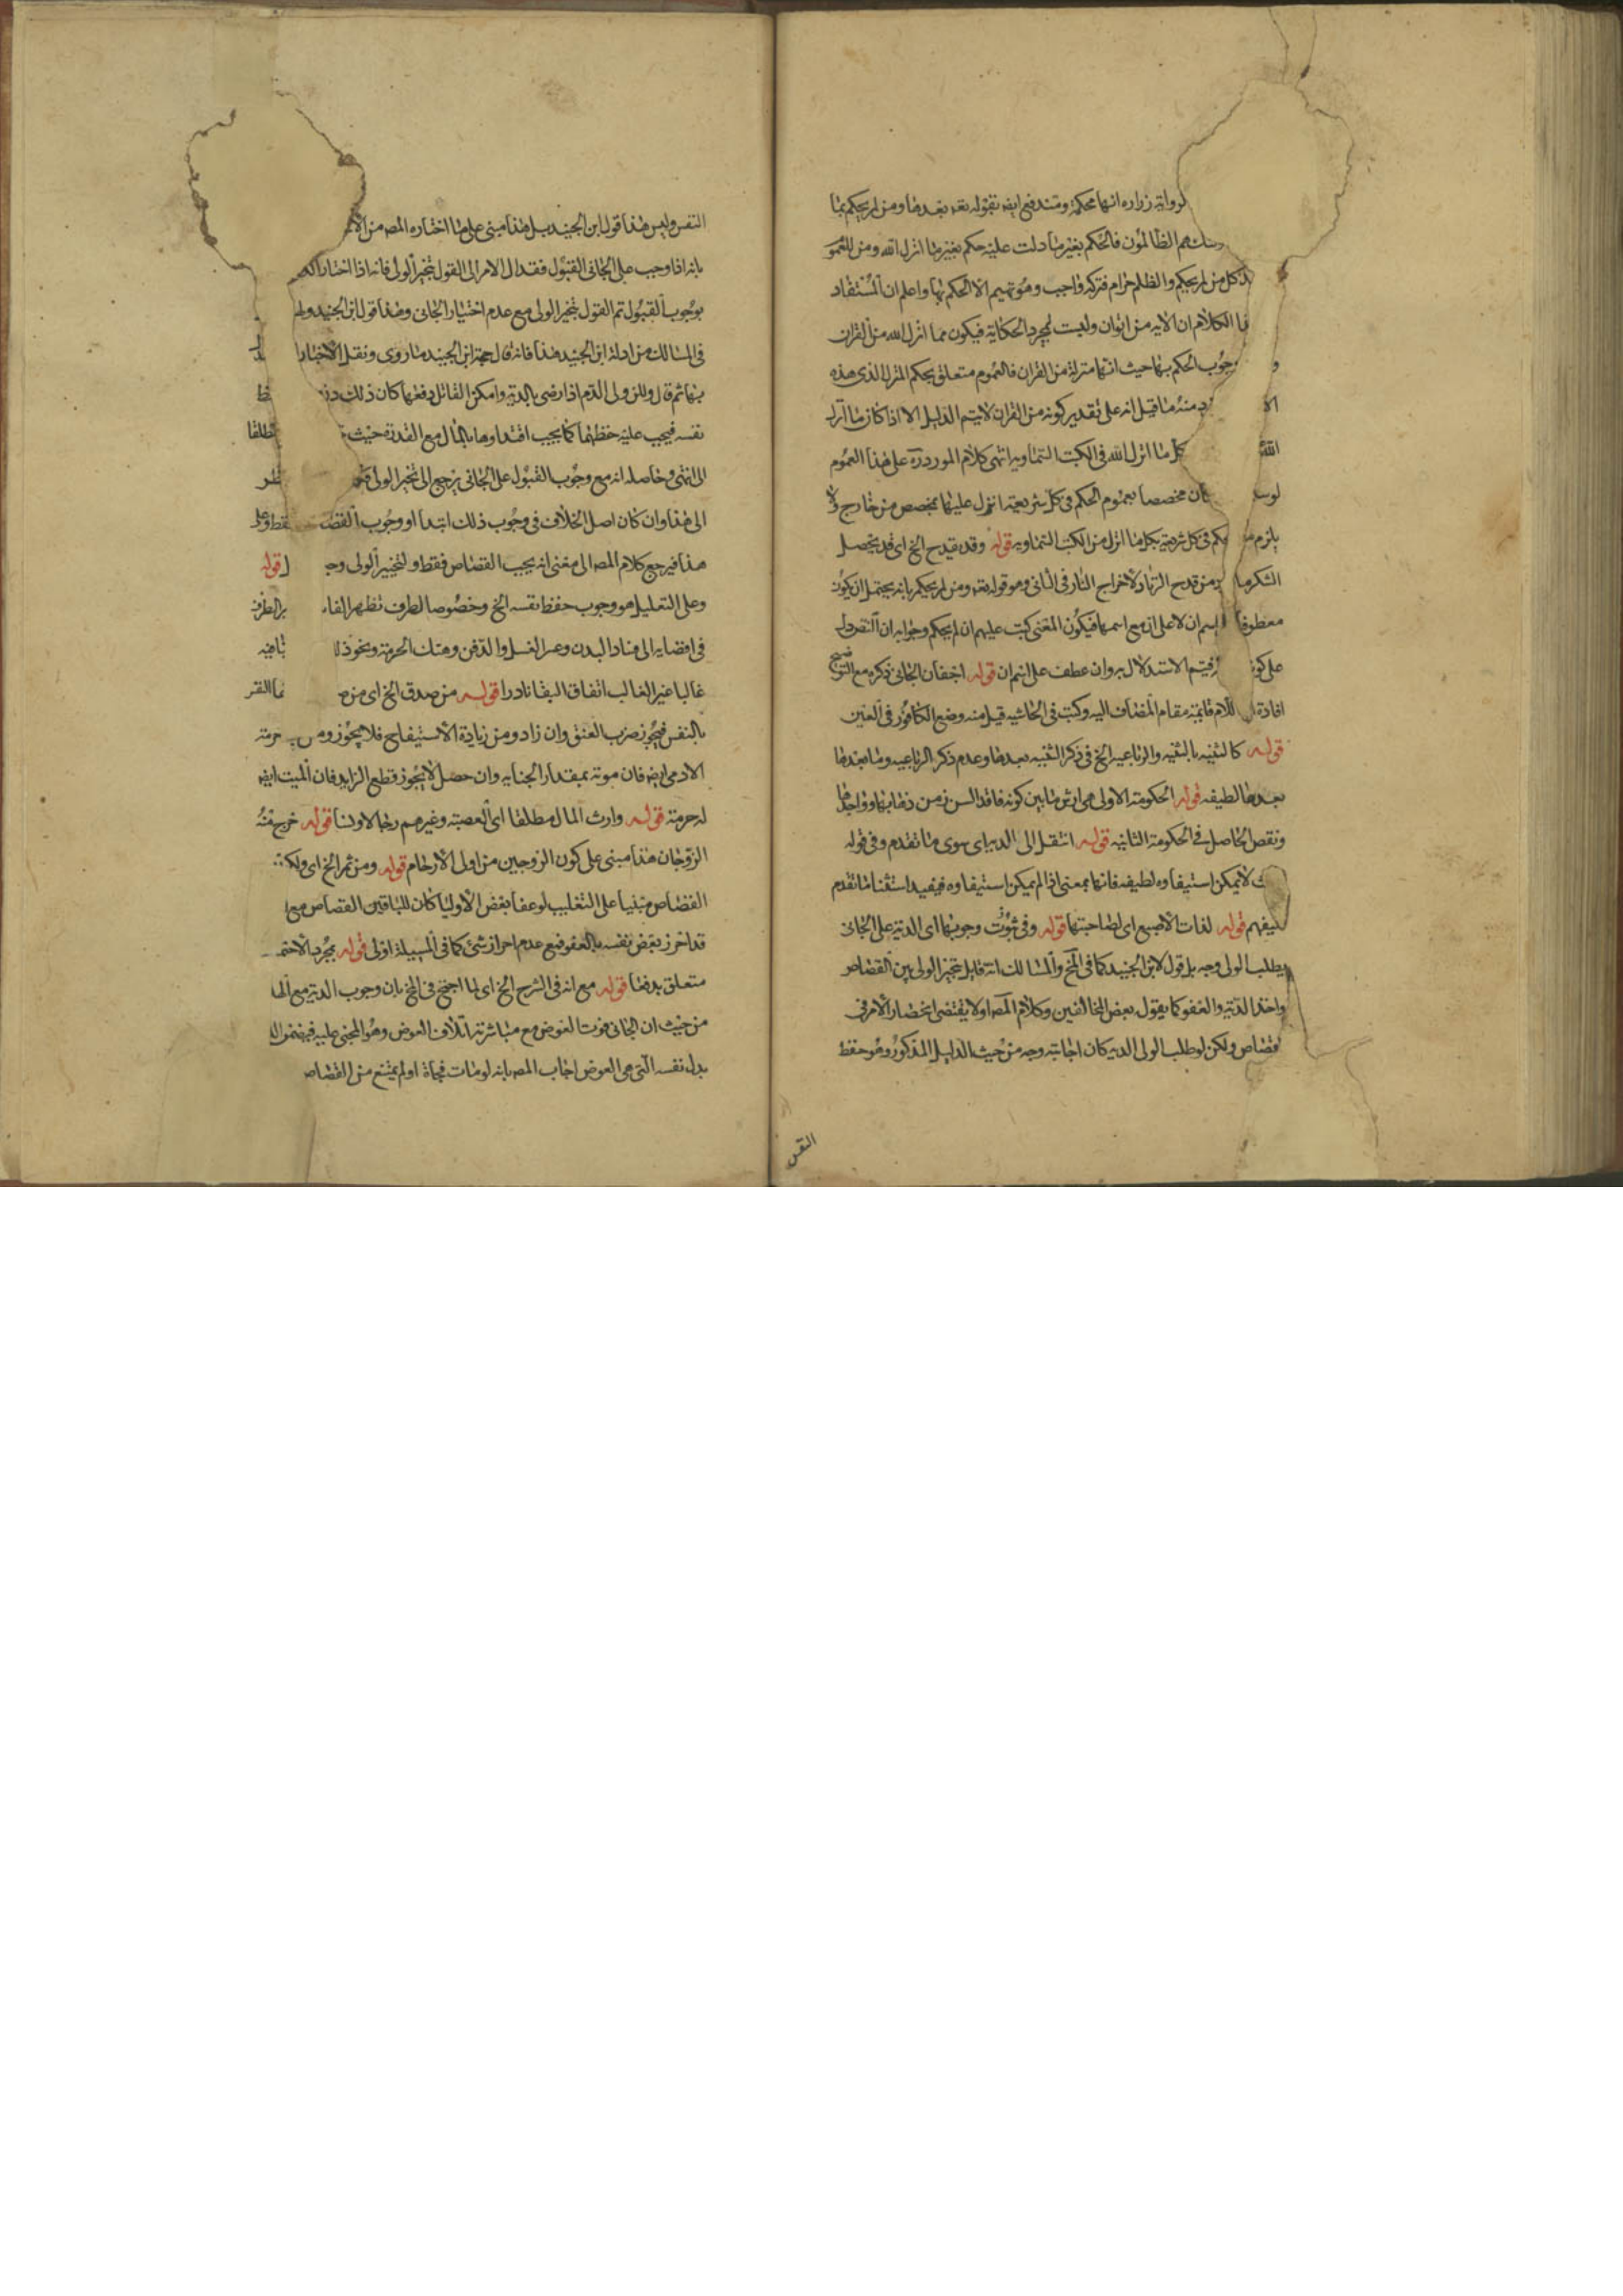 لرواية زراره انها محكمة ومندفع ايضه بقوله تعه بعدها ومن لم يحكم بما
هم الظالمون فالحكم بغير ما دلت عليه حكم بغير ما انزل الله ومن للعمو
كل من لم يحكم والظلم حرام فتركه واجب وهو تهيم الا الحكم بها واعلم ان المستفاد
الكلام ان الايه من ان وليست لمجرد الحكاية فيكون مما انزل الله من القران
و جوب الحكم بها حيث انها منزلة من القران فالعموم متعلق بحكم المنزل الذى هذه
منه ما قيل انه على تقدير كونه من القران لا يتم الدليل الا اذا كان ما انزل
الله كل ما انزل الله فى الكتب السماويه انتهى كلام المورد ره على هذا العموم
بان مخصصا بعموم الحكم فى كل شريعة انزل عليها بمخصص من خارج ولا
يلزم حكم فى كل شريعة بكل ما انزل من الكتب السماويه قوله وقد يقدح الخ اى قد يحصل
من قدح الزناد لاخراج النار فى الثانى وهو قوله تعه ومن لم يحكم بانه يحتمل ان يكون
معطوفا اسم ان لا على ان مع اسمها فيكون المعنى كتبت عليهم ان لم يحكم وجوابه ان النصر دل
على كو فيتم الاستدلال به وان عطف على اسم ان قوله اجفان الجانى ذكره مع التوضيح
افادة اللام قايمة مقام المضاف اليه وكتب فى الحاشيه قيل منه وضع الكافور فى العين
قوله كالثنيه بالثنيه والرباعيه الخ فى ذكر الثنيه بعدها وعدم ذكر الرباعيه وما بعدها
بعدها لطيفه قوله الحكومة الاولى هى ارش ما بين كونه فاقد السن زمن ذهابها وواجدها
ونقص الحاصل فى الحكومة الثانيه قوله انتقل الى الديه اى سوى ما تقدم وفى قوله
لا يمكن استيفاوه لطيفه فانها بمعنى اذا لم يمكن استيفاوه فيفيد استثنا ما تقدم
فليفهم قوله لفات الاصبع اى لصاحبتها قوله وفى ثبوت وجوبها اى الدية على الجانى
بطلب الولى وجه بل قول لابن الجنيد كما فى المخ والمسالك انه قايل بتخير الولى بين القصاص
واخذ الدية والعفو كما يقول بعض المخالفين وكلام المصه اولا يقتضى انحصار الامر فى
القصاص ولكن لو طلب الولى الديه كان اجابته وجه من حيث الدليل المذكور وهو حفظ
النفس
النفس وليس هذا قول ابن الجنيد بل هذا مبنى على ما اختاره المصه من الا
بانه اذا وجب على الجانى القبول فقد ال الامر الى القول بتخير الولى فانه اذا اختار
بوجوب القبول تم القول بتخير الولى مع عدم اختيار الجانى وهذا قول ابن الجنيد ولهذ
فى المسالك من ادلة ابن الجنيد هذا فانه قال حجة ابن الجنيد ما روى ونقل الاخبار
بها ثم قال ولان ولى الدم اذا رضى بالدية وامكن القاتل دفعها كان ذلك
نفسه فيجب عليه حفظها كما يجب افتداوها بالمال مع القدرة حيث مطلقا
الى انتهى وحاصله انه مع وجوب القبول على الجانى يرجع الى تخير الولى
الى هذا وان كان اصل الخلاف فى وجوب ذلك ابتدا او وجوب القصا فقط وعلى
هذا فيرجع كلام المصه الى معنى انه يجب القصاص فقط ولتخيير الولى وجه قوله
وعلى التعليل هو وجوب حفظ نفسه الخ وخصوصا لطرف تظهر الفا بر الطرف
فى افضايه الى فساد البدن وعسر الغسل والدفن وهتك الحرمة ونحو ذلك
غالبا غير الغالب اتفاق البقا نادرا قوله من صدق الخ اى من
بالنفس فيجوز ضرب العنق وان زاد ومن زيادة الاستيفاح فلا يجوز ومن حرمة
الادمى ايضه فان موته بمقدار الجنايه وان حصل لا يجوز قطع الزايد فان الميت ايضه
له حرمة قوله وارث المال مطلقا اى العصبة وغيرهم رجالا ونسا قوله خرج منه
الزوجان هذا مبنى على كون الزوجين من اولى الارحام قوله ومن ثم الخ اى ولكون
القصاص مبنيا على التغليب لو عفا بعض الاوليا كان للباقين القصاص مع
قد احرز بعض نفسه بالعفو فمع عدم احراز شئ كما فى المسيلة اولى قوله بمجرد الاحتم
متعلق بدفنا قوله مع انه فى الشرح الخ اى لما احتج فى المخ بان وجوب الدية مع
من حيث ان الجانى فوت العوض مع مباشرته اتلاف العوض وهو المجنى عليه فيضمن
بدل نفسه التى هى العوض اجاب المصه بانه لو مات فجاة او لم يمتنع من القصاص